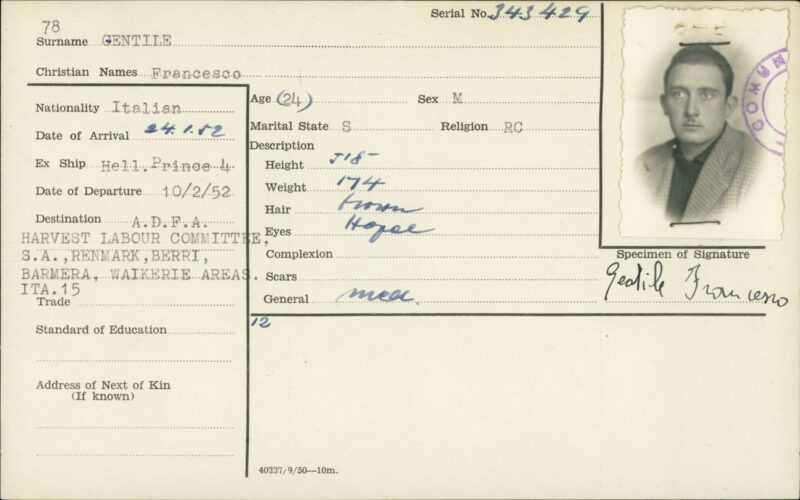 78
Serial No. 343429
Surname GENTILE
Christian Names Francesco
Nationality Italian
Date of Arrival 24.1.52
Ex Ship Hell. Prince 4
Date of Departure 10/2/52
Destination A.D.F.A.
HARVEST LABOUR COMMITTEE,
S.A.,RENMARK,BERRI,
BARMERA, WAIKERIE AREAS.
ITA.15
Trade
Standard of Education
Address of Next of Kin
(If known)
Age (24) Sex M
Marital State S Religion RC
Description
Height 5'8"
Weight 174
Hair brown
Eyes Hazel
Complexion
Scars
General med.
12
40237/9/50—10m.
Specimen of Signature
Gentile Francesco